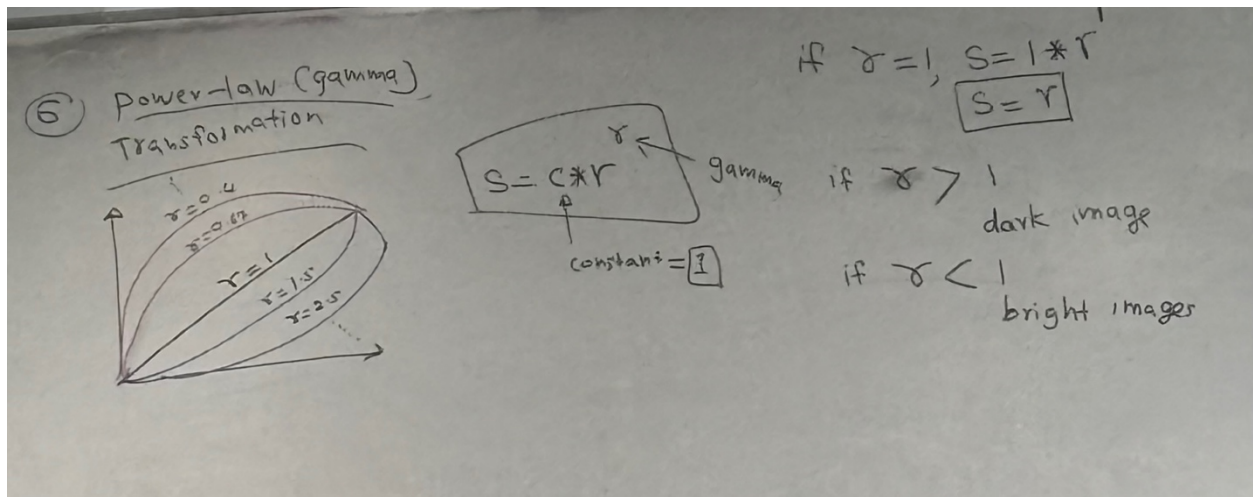 6 Power-law (gamma)
Transformation
γ=0.4
γ=0.67
γ=1
γ=1.5
γ=2.5
S = C*r^γ
gamma
constant = 1
if γ=1, S=1*r^1
S=r
if γ > 1
dark image
if γ < 1
bright images